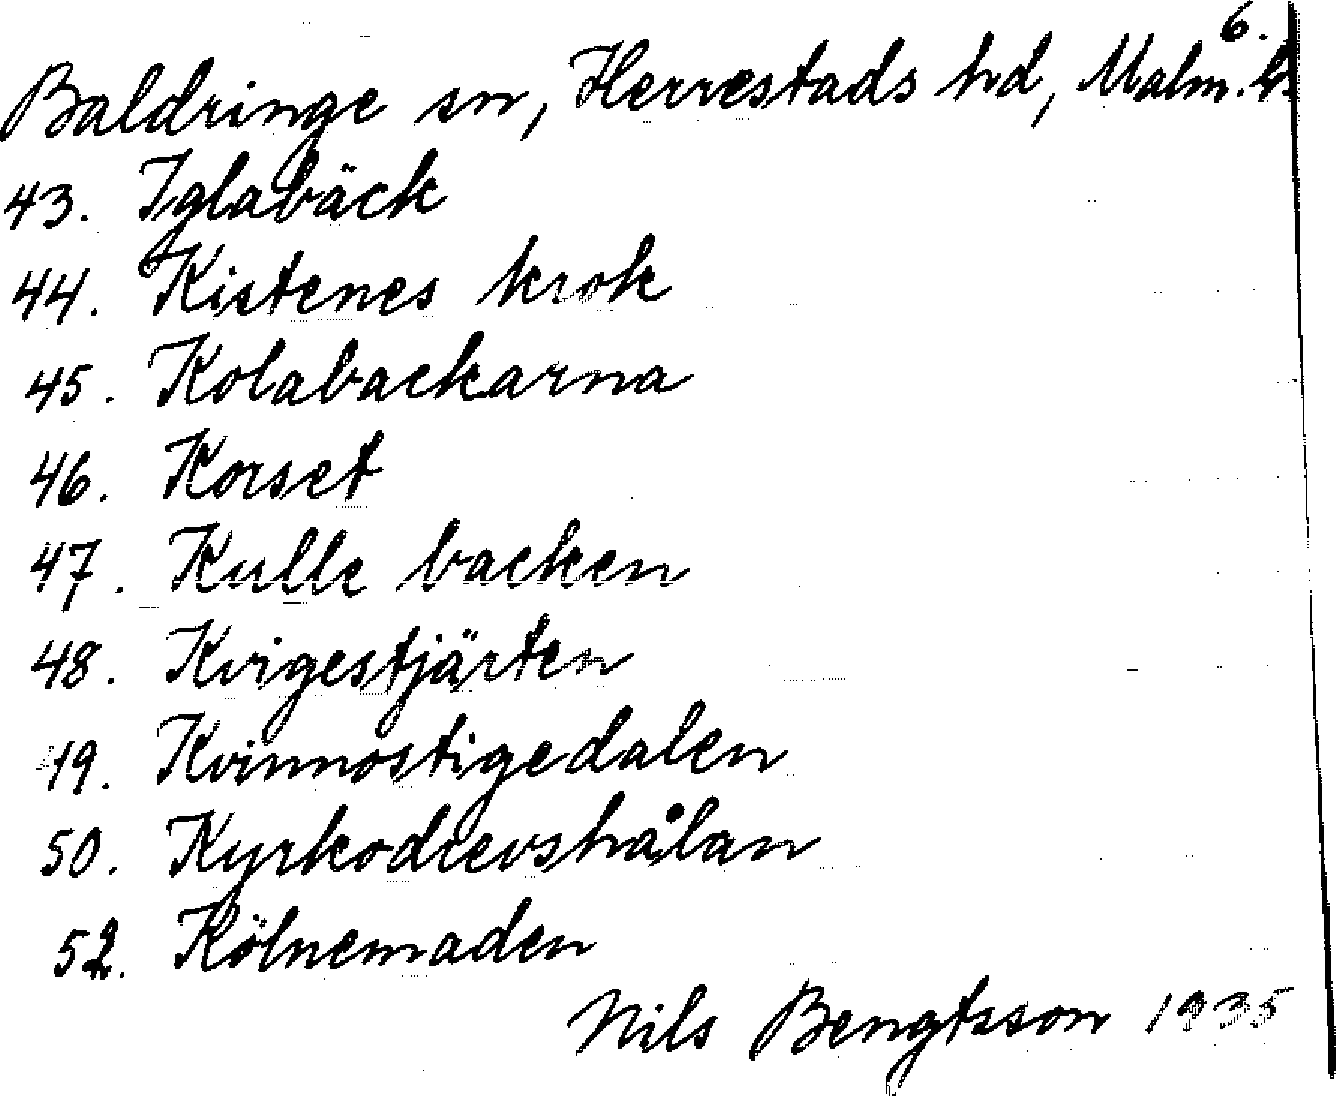 6.
Baldringe sn, Herrestads hd, Malm. l.
43. Iglabäck
44. Kistenes krok
45. Kolabackarna
46. Korset
47. Kulle backen
48. Kvigestjärten
49. Kvinnostigedalen
50. Kyrkodievshålan
52. Kölnemaden
Nils Bengtsson 1935